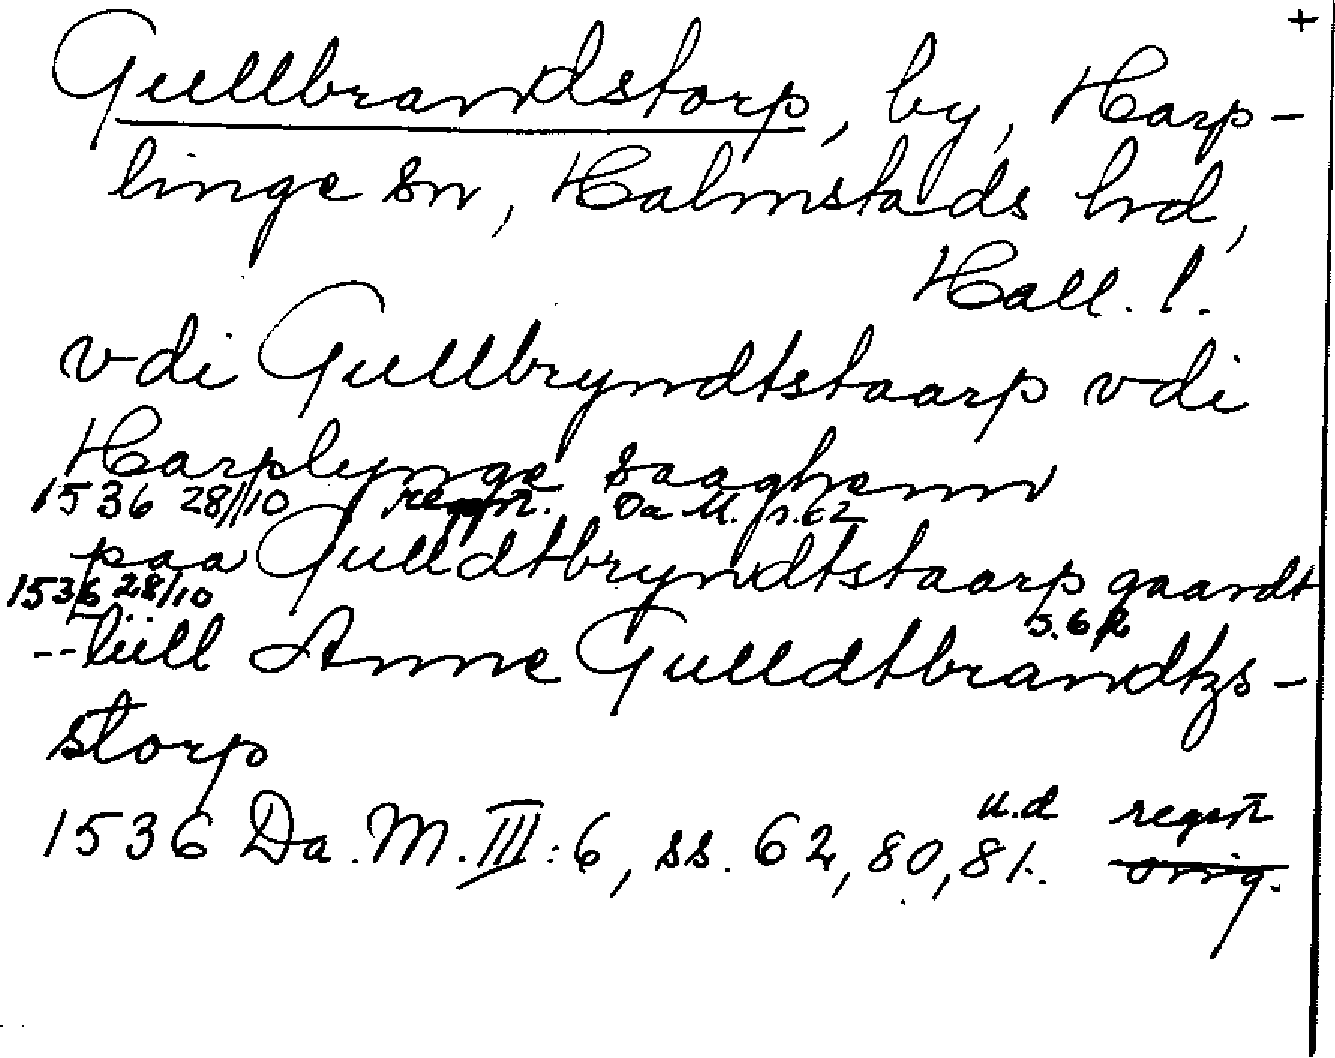 +
Gullbrandstorp, by, Harp-
linge sn, Halmstads hrd,
Hall. l.
vdi Gullbryndtstaarp vdi
Harplynge saaghenn
1536 28/10 regstr. Da M. s. 62
paa Gulldtbryndtstaarp gaardt
1536 28/10 s. 62
-- tiill Anne Gulldtbrandtzs-
storp
u.d regstr
1536 Da. M. III: 6, ss. 62, 80, 81. orig.